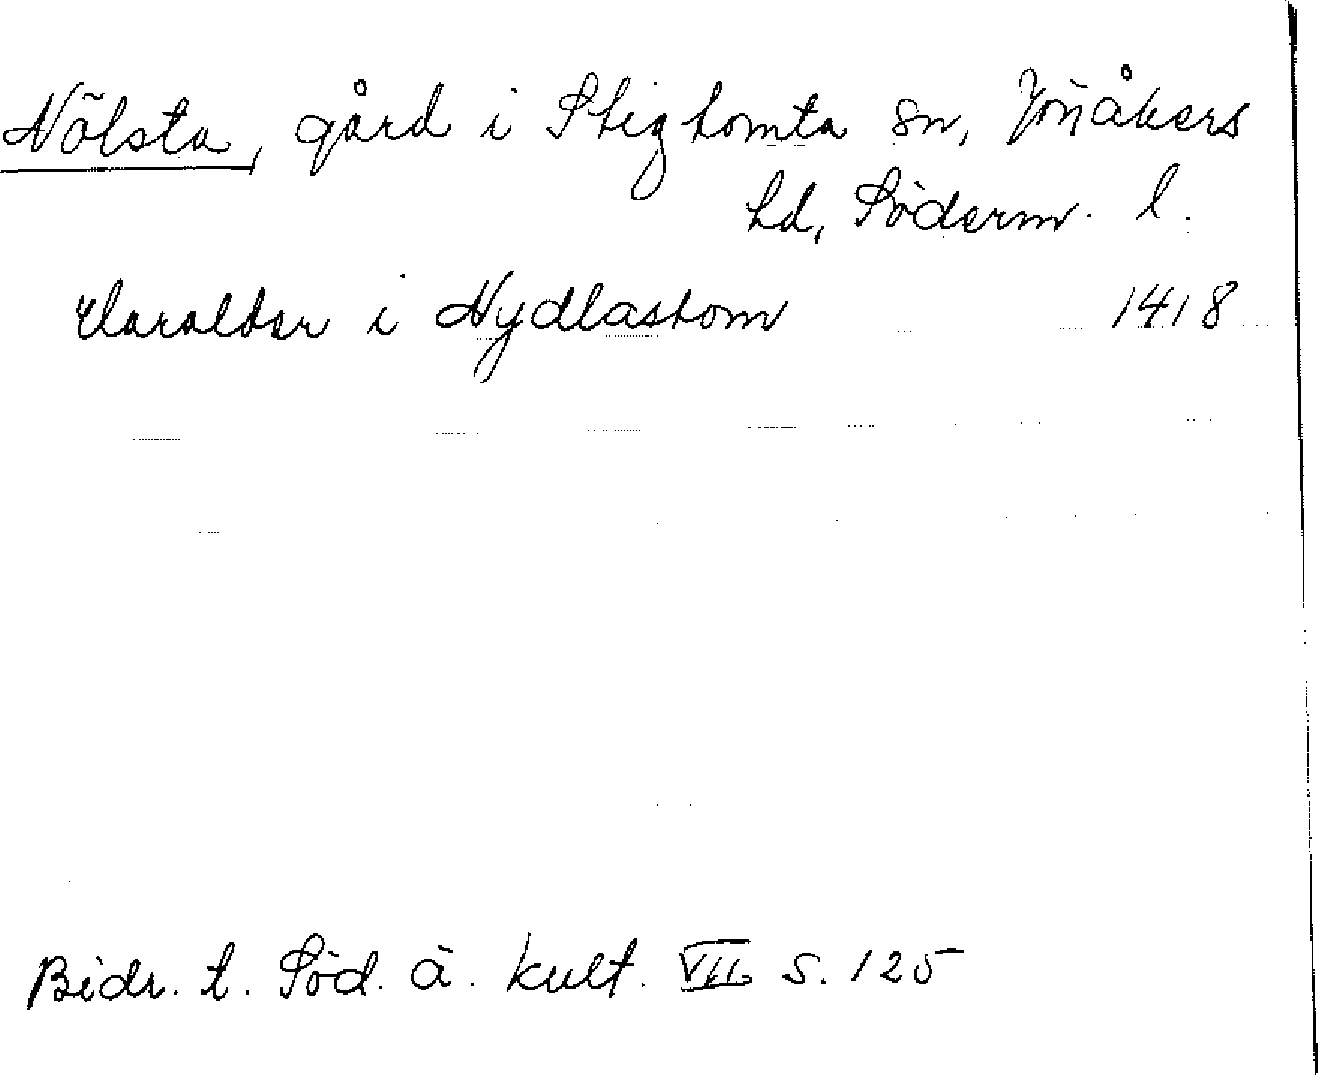 Nölsta, gård i Stighomta sn, Jönåkers
hd, Söderm. l.
Haralder i Nydlastom 1418
Bidr. t. Söd. ä. kult. VII s. 125